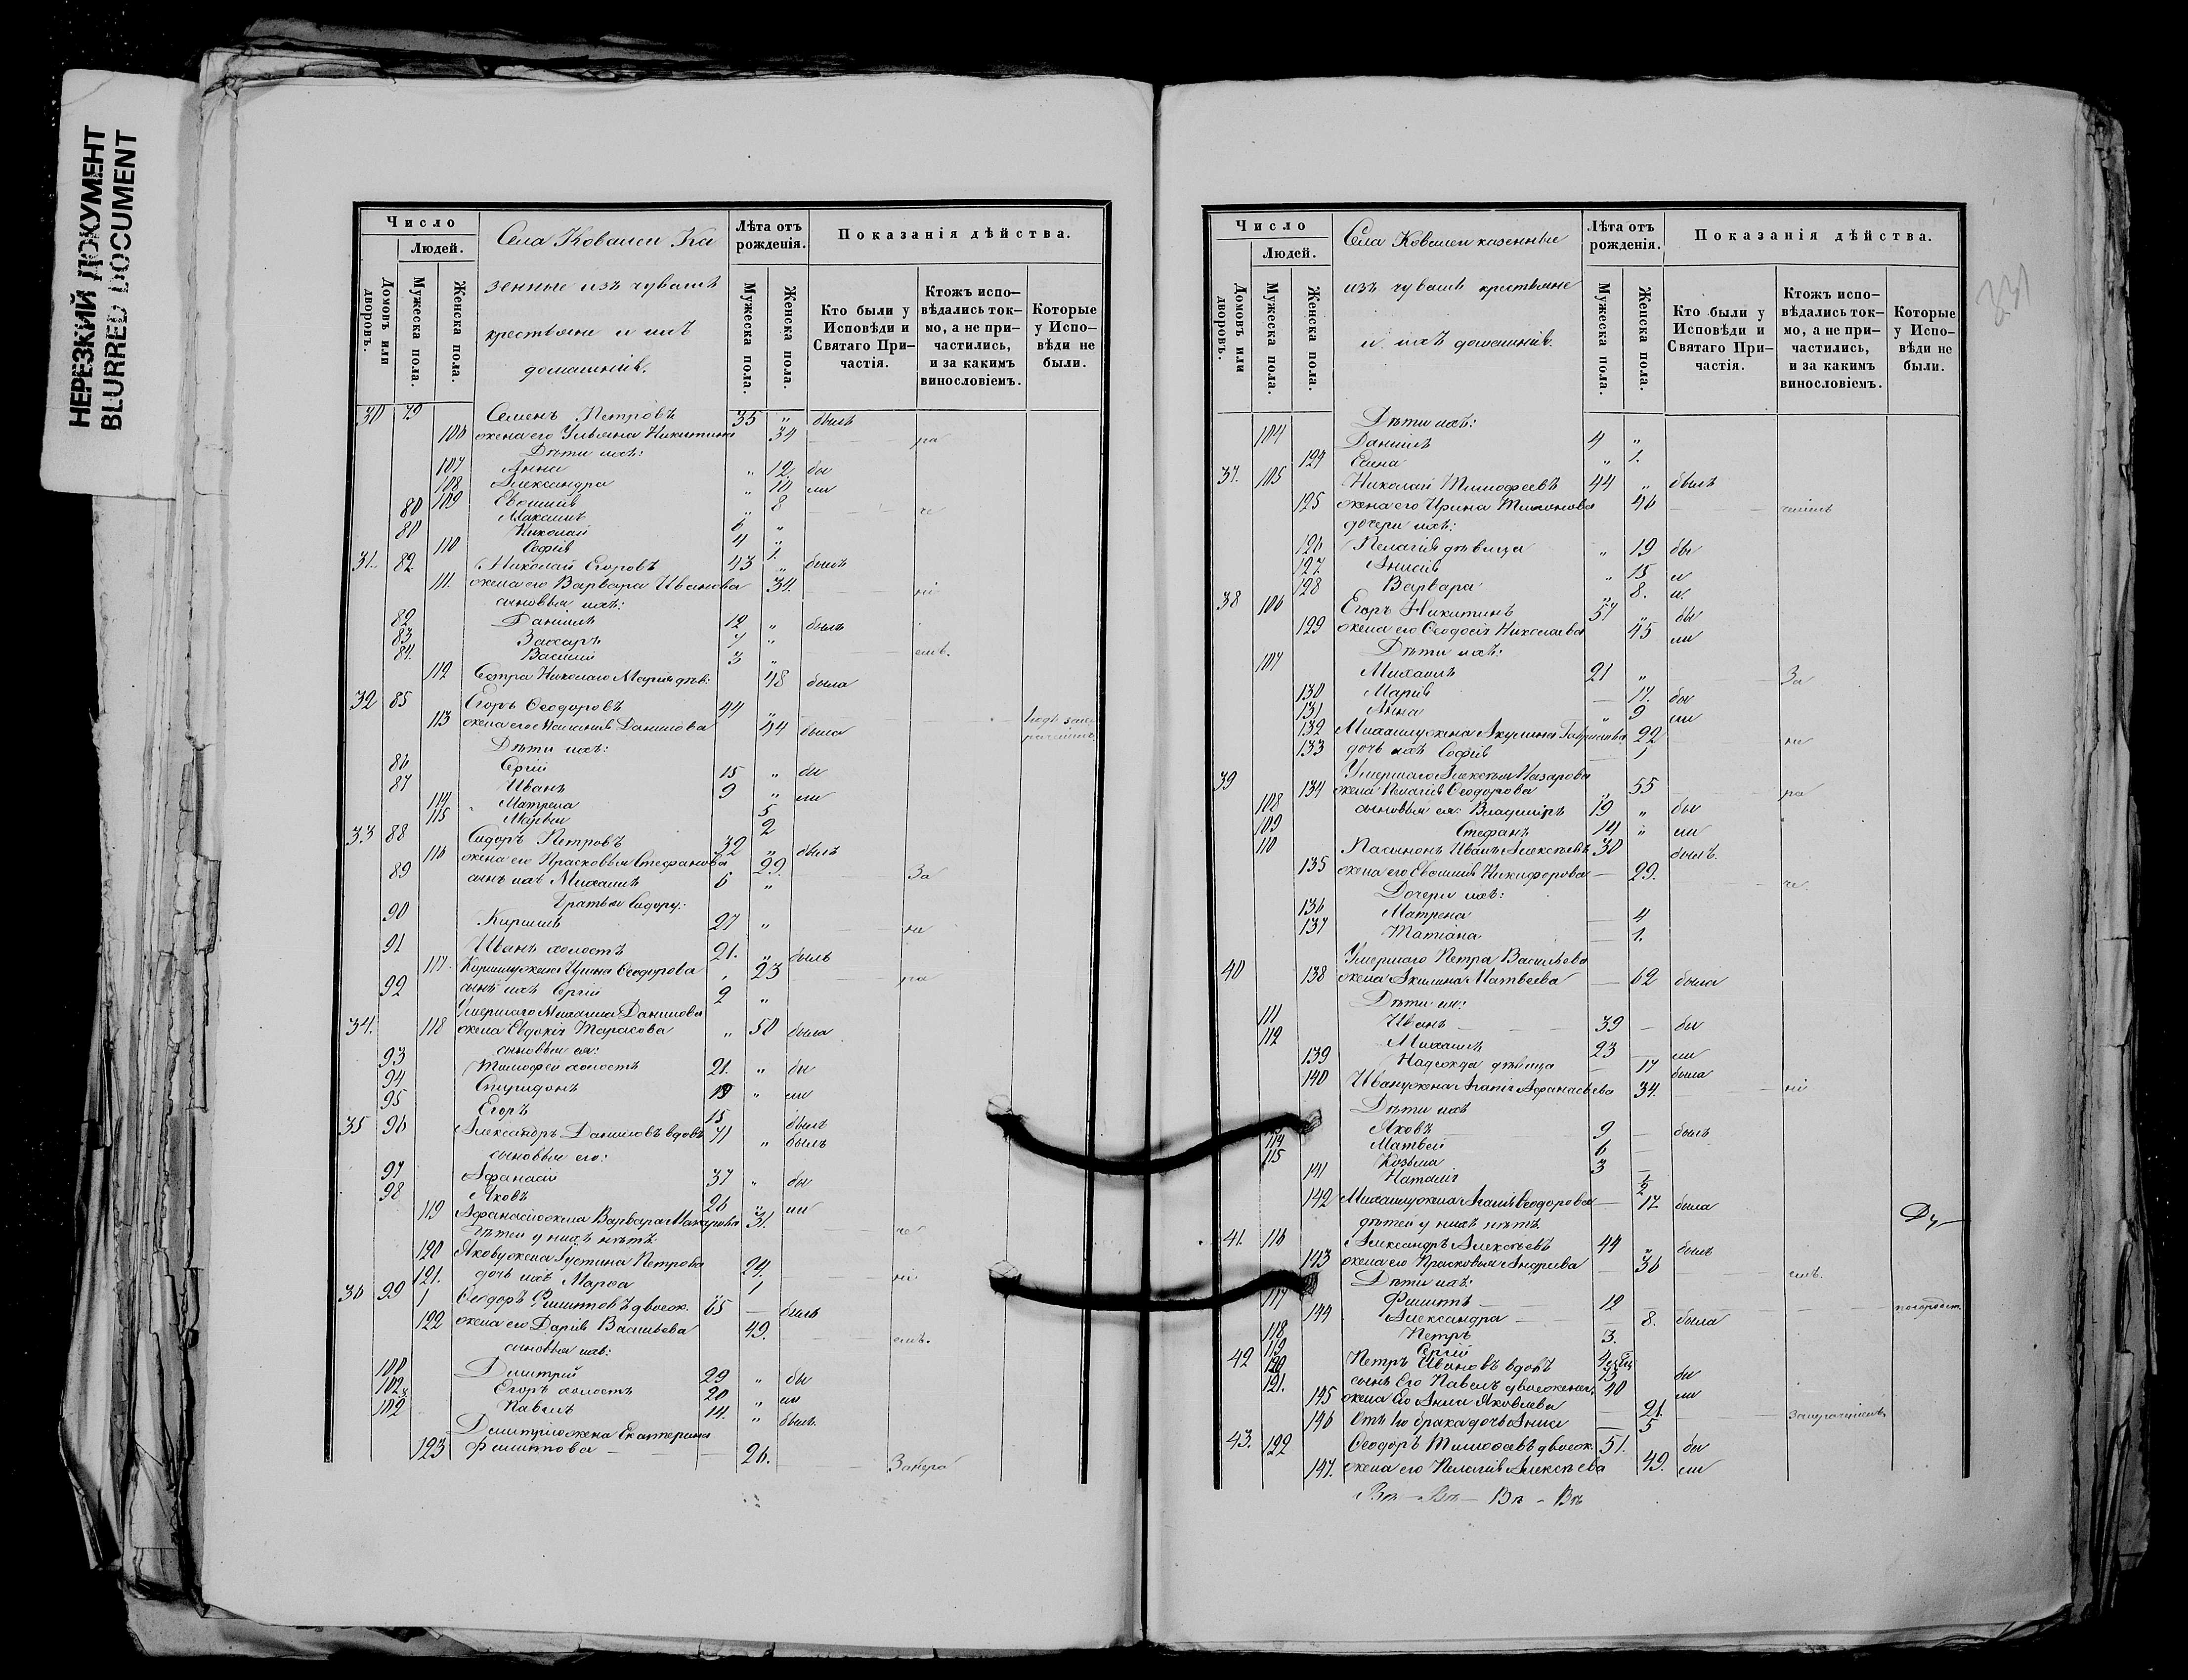 НЕРЕЗКИЙ ДОКУМЕНТ
BLURRED DOCUMENT
Число
Людей.
Домовъ или дворовъ.
Мужеска пола.
Женска пола.
Села Ковалеи Ка
зенные изъ чувашъ
крестьяне и ихъ
домашнiе.
Лѣта отъ рожденiя.
Мужеска пола.
Женска пола.
Показанiя дѣйства.
Кто были у Исповѣди и Святаго При-частiя.
Ктожъ испо-вѣдались ток-мо, а не при-частились, и за какимъ винословiемъ.
Которые у Испо-вѣди не были.
30 79 Семенъ Петровъ 35 „ былъ
106 жена его Ульяна Никитина 34 ра
Дѣти ихъ:
107 Анна „ 12. бы
108 Александра „ 10 ли
109 Евѳимiя „ 8
80 Максимъ 6 „ че
80 Николай 4 „
110 Софiя 1.
31. 82 Николай Егоровъ 43 „ былъ
111. жена его Варвара Иванова 34. нi
сыновья ихъ:
82 Данiилъ 12 „ былъ
83 Захаръ 7 „
84. Василiй 3 „ емъ.
112 Сестра Николаю Марiя дѣв: 48 была
32 85 Егоръ Ѳеодоровъ 44 „
113 жена его Меланiя Данилова 44 была
Дѣти ихъ:
86 Сергiй 15 „ бы
87 Иванъ 9 „ ли
114 Матрена 5
115 Марѳа 2
33 88 Сидоръ Петровъ 32 „ былъ
116 жена его Прасковья Стефанова 29.
89 сынъ ихъ Михаилъ 6 „ За
Братья Сидору:
90 Кириллъ 27 „ пе
91 Иванъ холостъ 21. „ былъ
117. Кириллу жена Ирина Ѳеодорова „ 23
92 сынъ ихъ Сергiй 2 „ ра
Умершаго Михаила Данилова
34. 118 жена Евдокiя Тарасова „ 50 была
сыновья ея:
93 Тимофей холостъ 21. „ бы
94 Спиридонъ 19 „ ли
95 Егоръ 15 былъ
35 96 Александръ Даниловъ вдовъ 71 „ былъ
сыновья его:
97 Афанасiй 37 „ бы
98 Яковъ 26 „ ли
119 Афанасiю жена Варвара Макарова 31.
Дѣтей у нихъ нѣтъ че
120 Якову жена Iустина Петрова 24.
121. дочь ихъ Марѳа 1 нi
36 99 Ѳеодоръ Филипповъ двоеж. 65 — былъ
122 жена его Дарiя Васильева 49. емъ.
сыновья ихъ:
100 Дмитрiй 29 „ бы
102 Егоръ холостъ 20 „ ли
102 Павелъ 14. „ былъ
Дмитрiю жена Екатерина
123 Филиппова — 26. Запра
331
Число
Людей.
Домовъ или дворовъ.
Мужеска пола.
Женска пола.
Села Ковалеи казенные
изъ чувашъ крестьяне
и ихъ домашнiе.
Лѣта отъ рожденiя.
Мужеска пола.
Женска пола.
Показанiя дѣйства.
Кто были у Исповѣди и Святаго При-частiя.
Ктожъ испо-вѣдались ток-мо, а не при-частились, и за какимъ винословiемъ.
Которые у Испо-вѣди не были.
Дѣти ихъ:
104 Данiилъ 4 „
124 Елена „ 1.
37. 105 Николай Тимофеевъ 44 „ былъ
125 жена его Ирина Тихонова 46 — ченiемъ
дочери ихъ:
126 Пелагiя дѣвица „ 19 бы
127. Анисiя „ 15 л
128 Варвара „ 8. и.
38 106 Егоръ Никитинъ 57 „ бы
129 жена его Ѳеодосiя Николаева 45 ли
Дѣти ихъ:
107 Михаилъ 21 „ За
130 Марiя — 17. бы
131 Анна „ 9 ли
132 Михаилу жена Акулина Гаврилова 22
133 дочь ихъ Софiя 1 пе
Умершаго Алексѣя Назарова
39 134 жена Пелагiя Ѳеодорова „ 55 ра
108 сыновья ея: Владимiръ 19 „ бы
109 Стефанъ 14 „ ли
110 Пасынокъ Иванъ Алексѣевъ 30 былъ.
135 жена его Евѳимiя Никифорова — 29. че
Дочери ихъ:
136 Матрена — 4
137 Татiана — 1.
Умершаго Петра Васильева
40 138 жена Акилина Матвѣева — 62 была
Дѣти ея:
111 Иванъ — 39 — бы
112 Михаилъ 23 — ли
139 Надежда дѣвица — 17 была
140 Ивану жена Агапiя Афанасьева 34. нi
Дѣти ихъ
Яковъ 9 — былъ
114 Матвѣй 6 —
115 Козьма 3 —
141 Наталiя ½
142 Михаилу жена Агапiя Ѳеодорова — 17 была
дѣтей у нихъ нѣтъ
41. 116 Александръ Алексѣевъ 44 „ былъ
143 жена его Прасковья Андреева — 36
Дѣти ихъ: емъ.
117 Филиппъ 12
144 Александра — 8. была
118 Петръ 3.
119 Сергiй
42 120 Петръ Ивановъ вдовъ 73 бы
121. сынъ Его Павелъ двоеженецъ 40 ли
145 жена Его Анна Яковлева 21.
146 Отъ 1го брака дочь Анна — 5
43. 122 Ѳеодоръ Тимоѳеевъ двоеж. 51. бы
147. жена его Пелагiя Алексѣева 49. ли